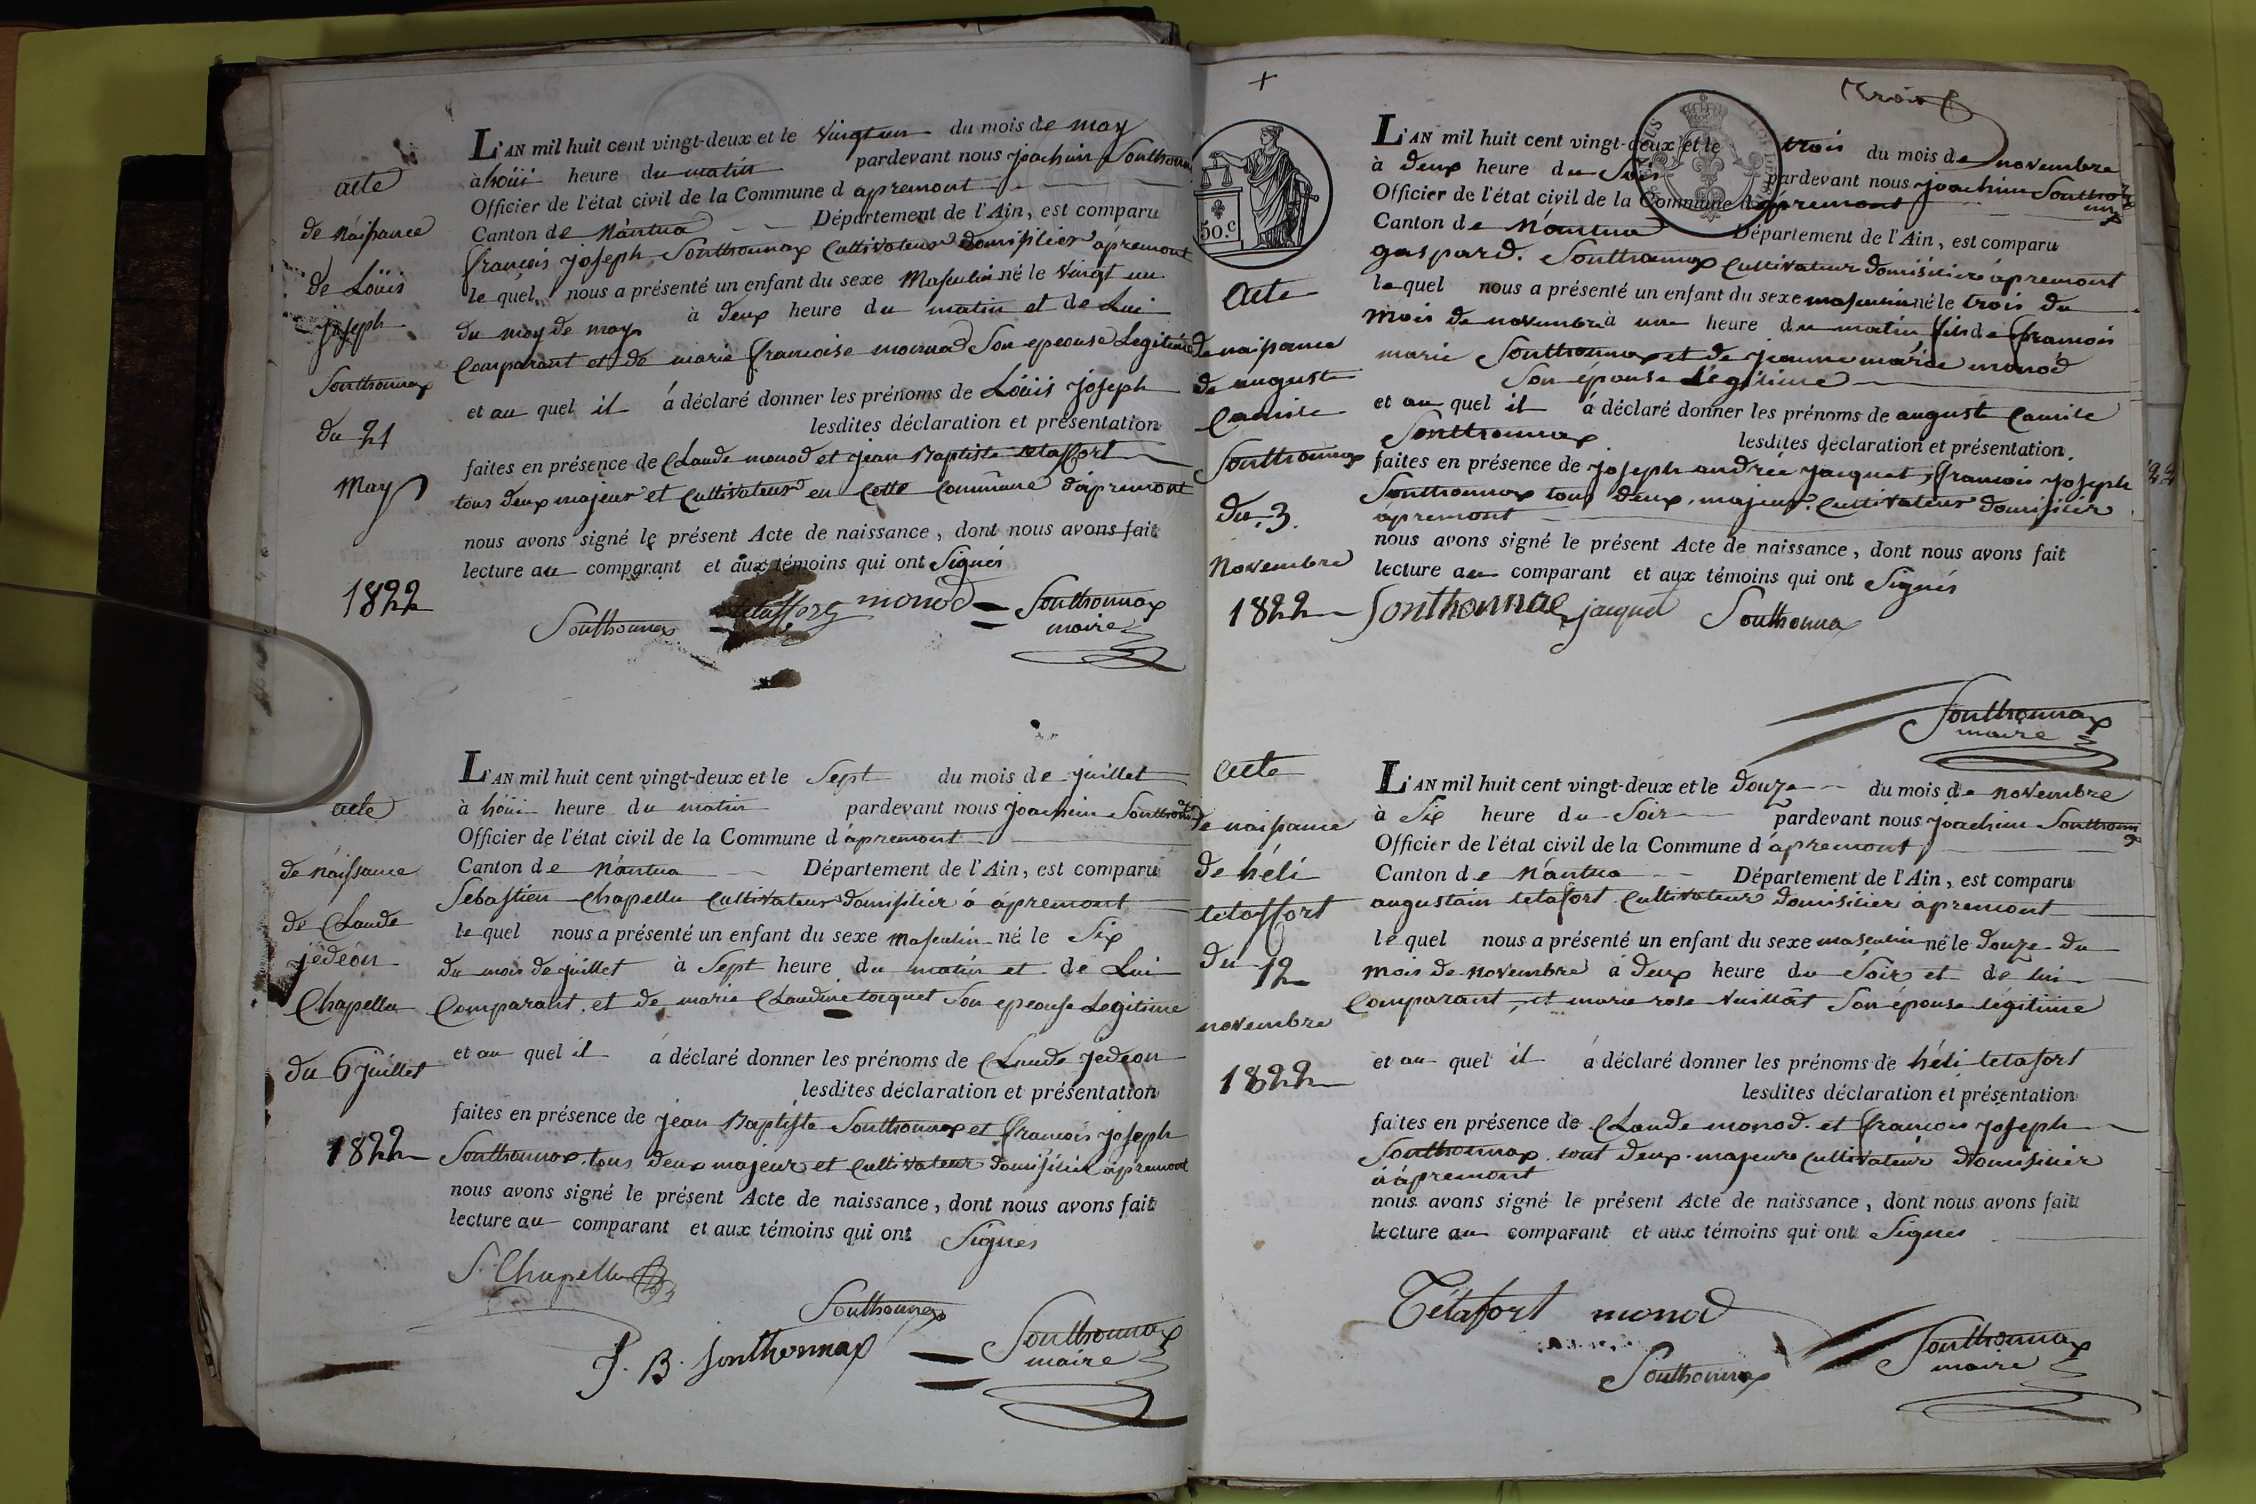 acte
de náissance
de Löüis
joseph
Sonthonnax
du 21
May
1822
L'AN mil huit cent vingt-deux et le vingt un du mois de may
à hüii heure du matin pardevant nous joachim Sonthonnax
Officier de l'état civil de la Commune d apremont
Canton de Nántua Département de l'Ain, est comparu
francois joseph Sonthonnax Cultivateur domisilier ápremont
le quel nous a présenté un enfant du sexe Masculin né le vingt un
du moy de may à deux heure du matin et de Lui
Comparant et de marie francoise monod Son epouse Legitime
et au quel il á déclaré donner les prénoms de Löüis joseph
lesdites déclaration et présentation
faites en présence de Claude monod et jean Baptiste tetaffort
tous deux majeur et Cultivateur en Cette Commune dápremont
nous avons signé le présent Acte de naissance, dont nous avons fait
lecture au comparant et aux témoins qui ont Signés
Sonthonnax tetaffort monod Sonthonnax
maire
acte
de náissance
de Claude
jédéon
Chapellu
du 6 juillet
1822
L'AN mil huit cent vingt-deux et le Sept du mois de juillet
à hüii heure du matin pardevant nous joachim Sonthonnax
Officier de l'état civil de la Commune d'ápremont
Canton de Nántua Département de l'Ain, est comparu
Sebastien Chapellu Cultivateur domisilier á ápremont
le quel nous a présenté un enfant du sexe Masculin né le Six
du mois de juillet à Sept heure du matin et de Lui
Comparant et de marie Claudine jacquet Son epouse Legitime
et au quel il á déclaré donner les prénoms de Claude jédéon
lesdites déclaration et présentation
faites en présence de jean Baptiste Sonthonnax et francois joseph
Sonthonnax tous deux majeur et Cultivateur domisilier ápremont
nous avons signé le présent Acte de naissance, dont nous avons fait
lecture au comparant et aux témoins qui ont Signés
S. Chapellu
Sonthonnax
J. B. Sonthonnax Sonthonnax
maire
+
trois
50.c
acte
de naissance
de auguste
Camile
Sonthonnax
du 3.
Novembre
1822
L'AN mil huit cent vingt-deux et le trois du mois de novembre
à deux heure du Soir pardevant nous joachim Sonthonnax
Officier de l'état civil de la Commune dápremont
Canton de Nántua Département de l'Ain, est comparu
gaspard. Sonthonnax Cultivateur domisilier ápremont
le quel nous a présenté un enfant du sexe masculin né le trois du
mois de novembre à une heure du matin fils de francois
marie Sonthonnax et de jeanne marie monod
Son épouse Légitime
et au quel il á déclaré donner les prénoms de auguste Camile
Sonthonnax lesdites déclaration et présentation
faites en présence de joseph andrée jacquet, francois joseph
Sonthonnax tous deux majeur Cultivateur domisilier
ápremont
nous avons signé le présent Acte de naissance, dont nous avons fait
lecture au comparant et aux témoins qui ont Signés
Sonthonnax jacquet Sonthonnax
Sonthonnax
maire
acte
de naissance
de héli
tetaffort
du 12
novembre
1822
L'AN mil huit cent vingt-deux et le douze du mois de novembre
à Six heure du Soir pardevant nous joachim Sonthonnax
Officier de l'état civil de la Commune d'ápremont
Canton de Nántua Département de l'Ain, est comparu
augustain tetafort Cultivateur domisilier ápremont
le quel nous a présenté un enfant du sexe masculin né le douze du
mois de novembre á deux heure du Soir et de lui
Comparant, et marie rose vuillât Son épouse légitime
et au quel il á déclaré donner les prénoms de héli tetafort
lesdites déclaration et présentation
faites en présence de Claude monod. et francois joseph
Sonthonnax tout deux majeure Cultivateur domisilier
áápremont
nous avons signé le présent Acte de naissance, dont nous avons fait
lecture au comparant et aux témoins qui ont Signés
Tétafort monod Sonthonnax
maire
Sonthonnax